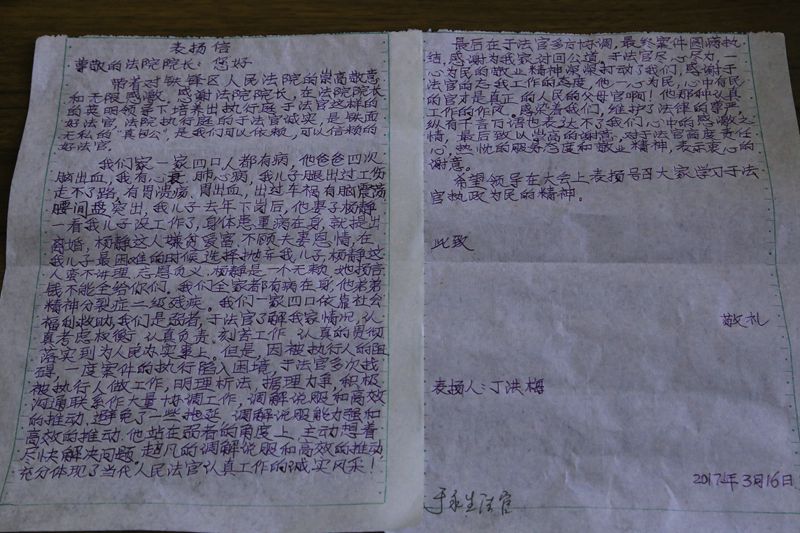 表扬信
尊敬的法院院长：您好
带着对铁锋区人民法院的崇高敬意
和无限感激，感谢法院院长，在法院院长
的英明领导下培养出执行庭于法官这样的
好法官，法院执行庭的于法官诚实是铁面
无私的“真包公”是我们可以依赖，可以信赖的
好法官。
我们家一家四口人都有病，他爸爸四次
脑出血，我有心衰、肺心病，我儿子腿出过工伤
走不了路，有胃溃疡、胃出血，出过车祸有脑震荡
腰间盘突出，我儿子去年下岗后，他妻子杨静
一看我儿子没工作了，身体患重病在身，就提出
离婚，杨静这人嫌贫爱富，不顾夫妻恩情，在
我儿子最困难的时候选择抛弃我儿子，杨静这
人蛮不讲理，忘恩负义，杨静是一个无赖，她扬言
钱不能全给你们。我们全家都有病在身，他弟弟
精神分裂症二级残疾。我们一家四口依靠社会
福利救助，我们是弱者，于法官了解我家情况，认
真考虑权衡，认真负责，刻苦工作，认真的贯彻
落实到为人民办实事上。但是，因被执行人的阻
碍，一度案件的执行陷入困境，于法官多次找
被执行人做工作，明理析法，据理力争，积极
沟通联系作大量协调工作，调解说服和高效
的推动，避免了一些拖延，调解说服能力强和
高效的推动。他站在弱者的角度上，主动想着
尽快解决问题。超凡的调解说服和高效的推动
充分体现了当代人民法官认真工作的诚实风采！
最后在于法官多方协调，最终案件圆满执
结，感谢为我家讨回公道，于法官尽心尽力，
心为民的敬业精神深深打动了我们，感谢于
法官的忘我工作的态度，他一心为民，心中有民
的官才是真正的人民的父母官啊！他那种认真
工作的作风。感染着我们，维护了法律的尊严
纵有千言万语也表达不了我们心中的感激之
情，最后致以崇高的谢意，对于法官高度责任
心，热忱的服务态度和敬业精神，表示衷心的
谢意。
希望领导在大会上表扬号召大家学习于法
官执政为民的精神。
此致
敬礼
表扬人：丁洪梅
2017年3月16日
于永生法官